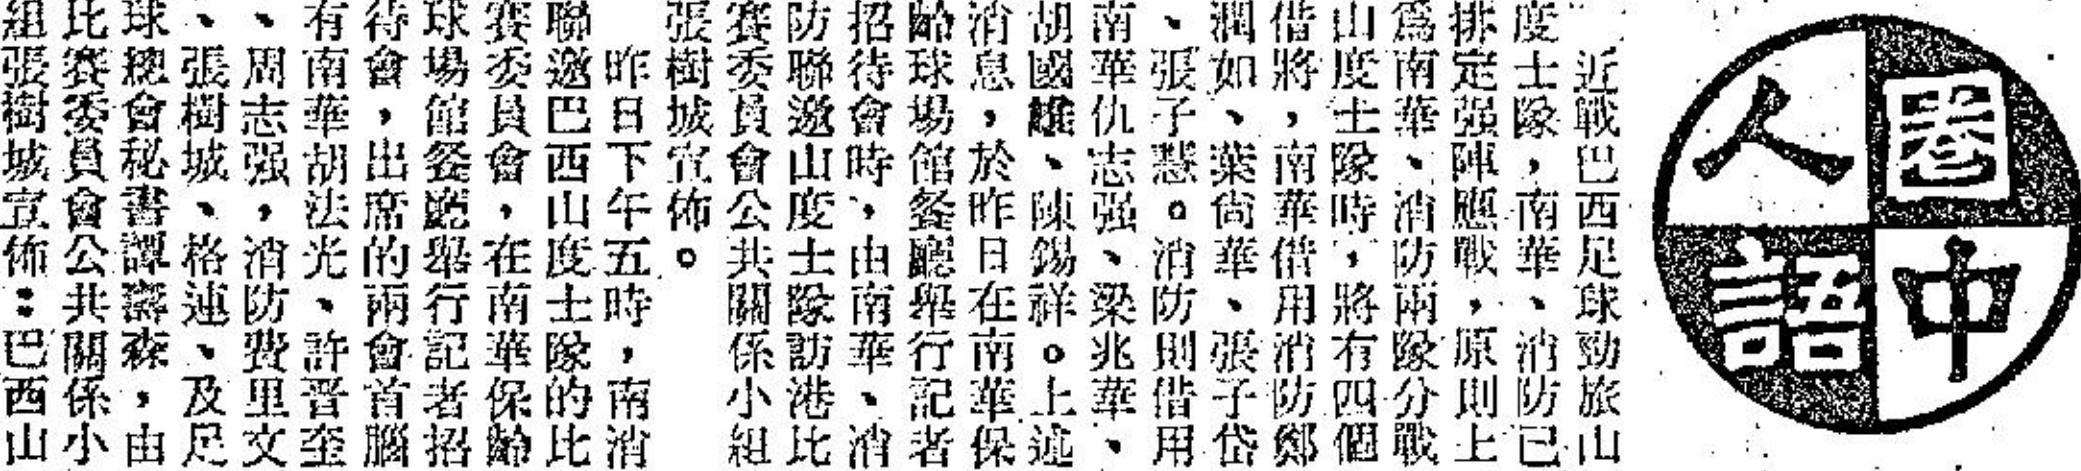 圈中人語
近戰巴西足球勁旅山
度士隊，南華、消防已
排定强陣應戰，原則上
爲南華、消防兩隊分戰
山度士隊時，將有四個
借將，南華借用消防鄭
潤如、葉尙華、張子岱
、張子慧。消防則借用
南華仇志强、梁兆華、
胡國雄、陳錫祥。上述
消息，於昨日在南華保
齡球場館餐廳舉行記者
招待會時，由南華、消
防聯邀山度士隊訪港比
賽委員會公共關係小組
張樹城宣佈。
昨日下午五時，南消
聯邀巴西山度士隊的比
賽委員會，在南華保齡
球場館餐廳舉行記者招
待會，出席的兩會首腦
有南華胡法光、許晋奎
、周志强，消防費里文
、張樹城、格連、及足
球總會秘書譚壽森，由
比賽委員會公共關係小
組張樹城宣佈：巴西山